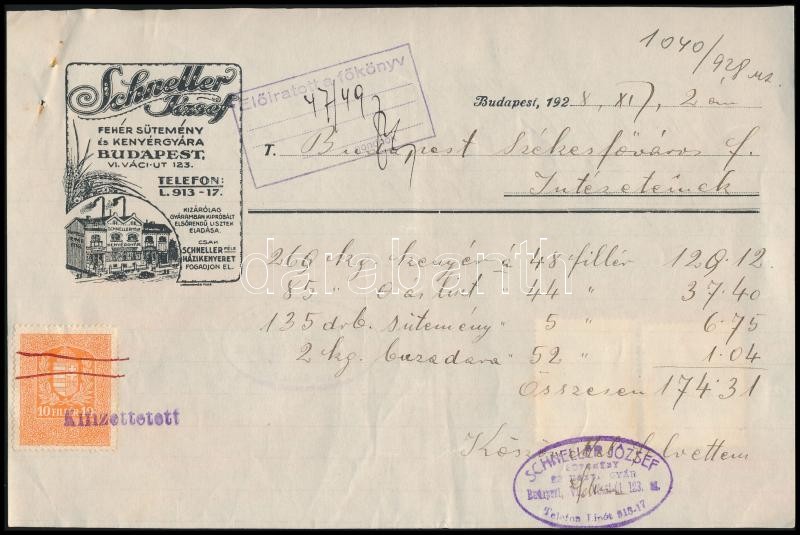 1040/928
Schneller
József
FEHÉR SÜTEMÉNY
ÉS KENYÉRGYÁRA
BUDAPEST,
VI. VÁCI-UT 123.
TELEFON:
L. 913-17.
KIZÁRÓLAG
GYÁRAMBAN KIPRÓBÁLT
ELSŐRENDŰ LISZTEK
ELADÁSA.
CSAK
SCHNELLER FÉLE
HÁZIKENYERET
FOGADJON EL.
Előiratott a főkönyv
4749
Budapest, 192 8. XI 2 án
T. Budapest Székesfőváros f.
Intézeteinek
269 kg. kenyér á 48 fillér 129.12
85 " 44 " 37.40
135 drb. sütemény " 5 " 6.75
2 kg. buzadara " 52 " 1.04
Összesen 174.31
darabanth
10 FILLÉR 10
Kifizettetett
felvettem
SCHNELLER JÓZSEF
Budapest, 123.
Telefon Lipót 913-17